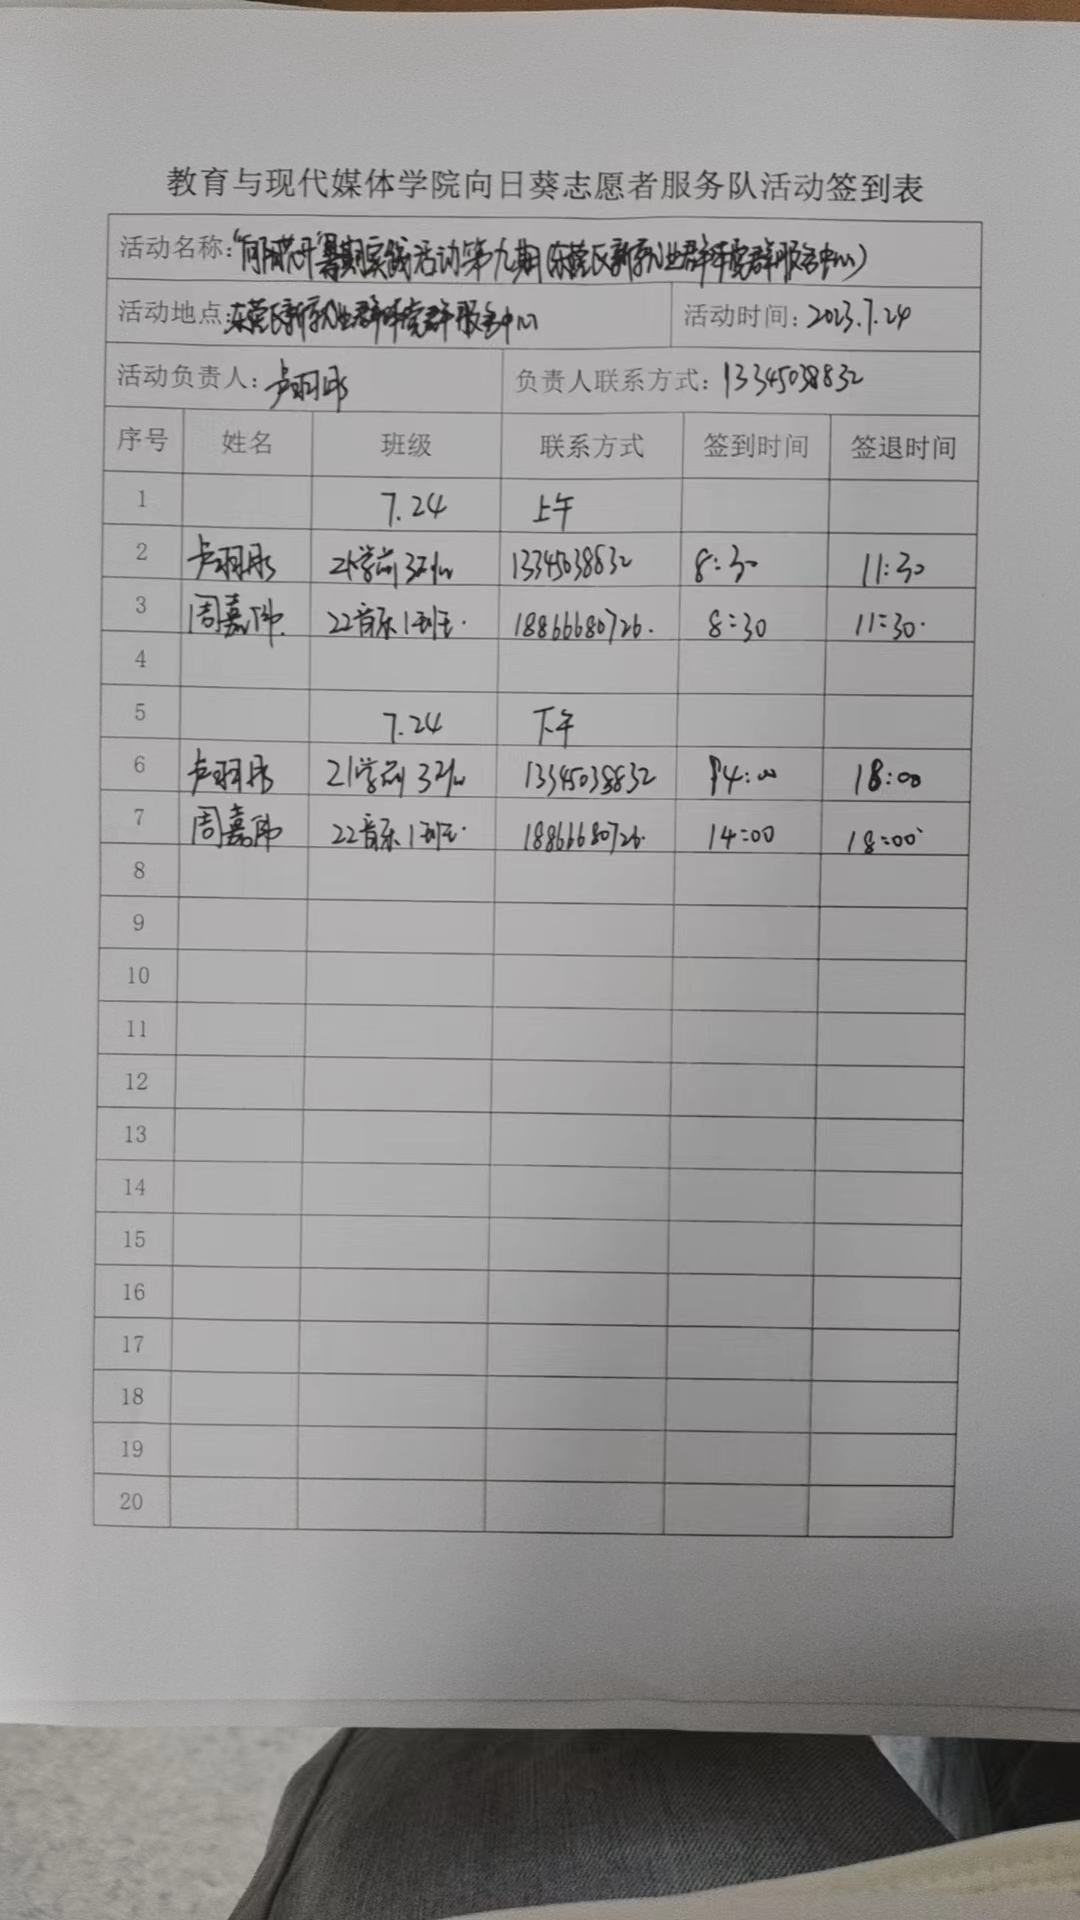 教育与现代媒体学院向日葵志愿者服务队活动签到表
活动名称:"向阳花开"暑期实践活动第九期(东营区新就业群体党群服务中心)
活动地点:东营区新就业群体党群服务中心 活动时间:2023.7.24
活动负责人:卢羽彤 负责人联系方式:13345038832
序号 姓名 班级 联系方式 签到时间 签退时间
1 7.24 上午
2 卢羽彤 21学前3班 13345038832 8:30 11:30
3 周嘉伟. 22音乐1班. 18866680726. 8:30 11:30.
4
5 7.24 下午
6 卢羽彤 21学前3班 13345038832 14:00 18:00
7 周嘉伟 22音乐1班. 18866680726. 14:00 18:00
8
9
10
11
12
13
14
15
16
17
18
19
20